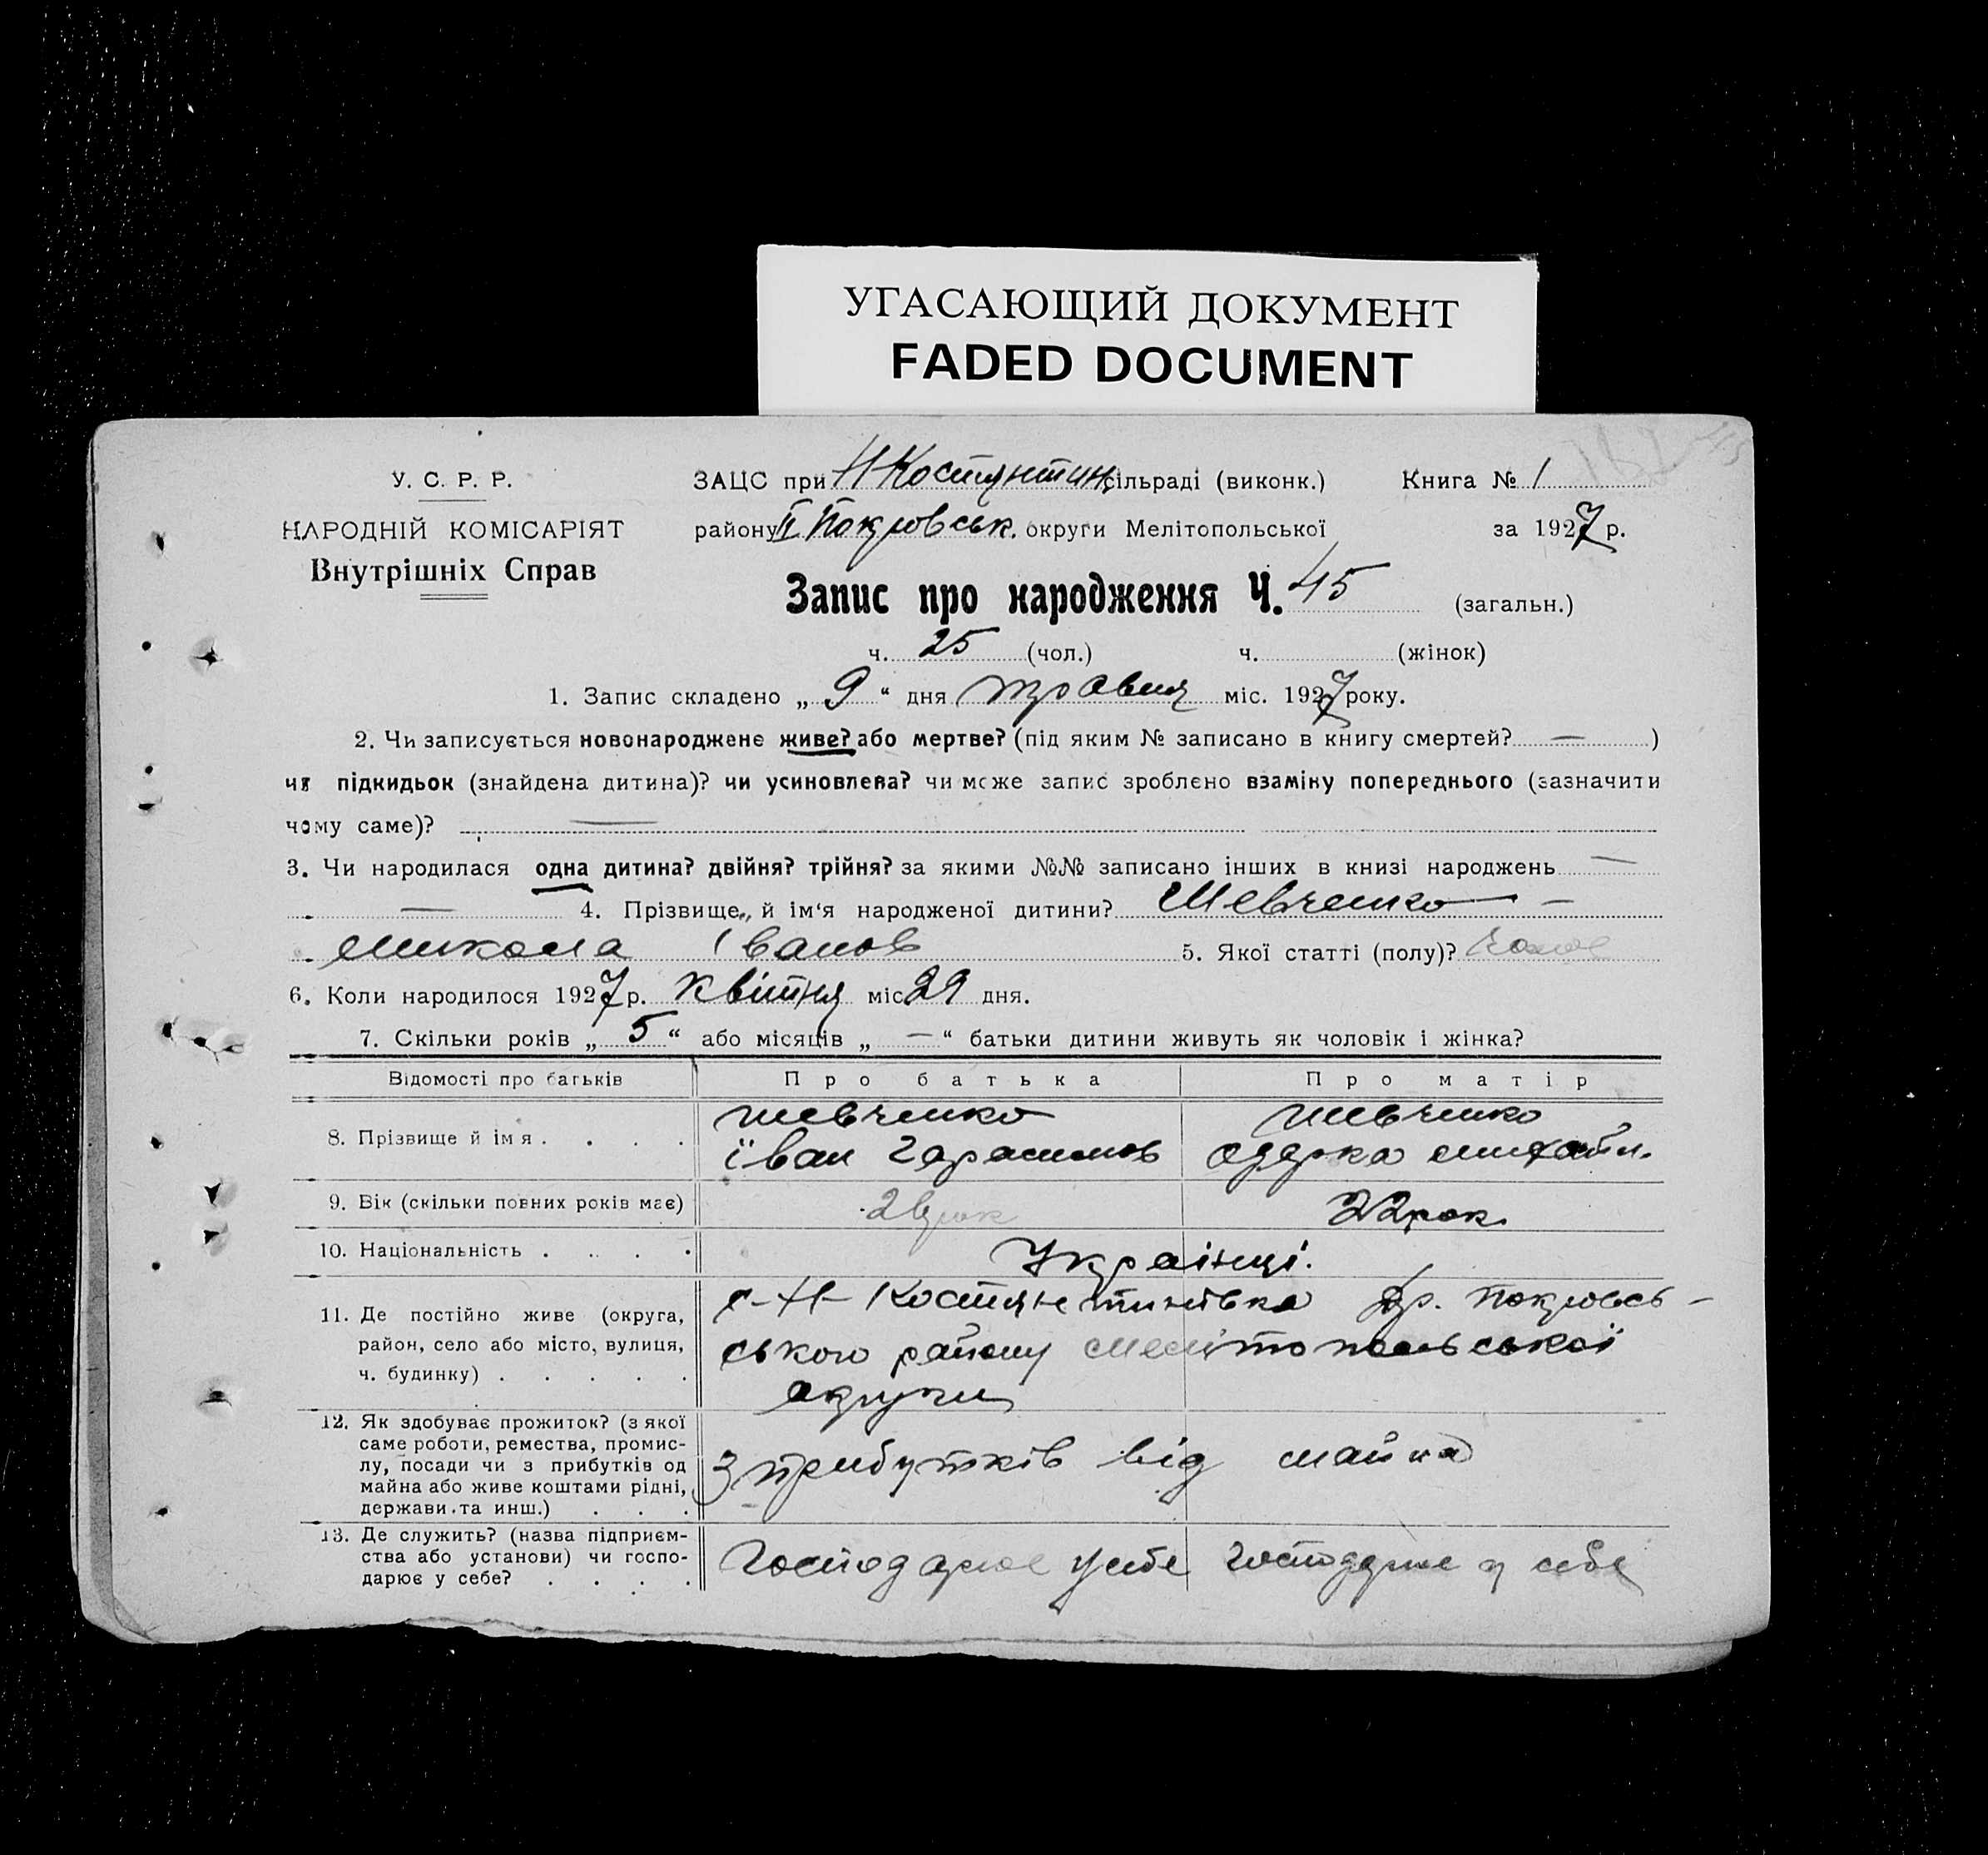 УГАСАЮЩИЙ ДОКУМЕНТ
FADED DOCUMENT
У. С. Р. Р.
НАРОДНІЙ КОМІСАРІЯТ
Внутрішніх Справ
ЗАЦС при Н Костянтин. сільраді (виконк.) Книга № 1
району ІІ Покровськ. округи Мелітопольської за 1927 р.
Запис про народження Ч. 45 (загальн.)
ч. 25 (чол.) ч. (жінок)
1. Запис складено „ 9 “ дня травня міс. 1927 року.
2. Чи записується новонароджене живе? або мертве? (під яким № записано в книгу смертей? — )
чи підкидьок (знайдена дитина)? чи усиновлева? чи може запис зроблено взаміну попереднього (зазначити
чому саме)? —
3. Чи народилася одна дитина? двійня? трійня? за якими №№ записано інших в книзі народжень —
— 4. Прізвище, й ім'я народженої дитини? Шевченко —
Микола Іванов 5. Якої статті (полу)?
6. Коли народилося 1927 р. Квітня міс. 29 дня.
7. Скільки років „ 5 “ або місяців „ — “ батьки дитини живуть як чоловік і жінка?
Відомості про батьків Про батька Про матір
8. Прізвище й ім'я . . . . Шевченко Шевченко
Іван Гарасимов Одарка Михайл.
9. Вік (скільки повних років має) 26 рок 22 рок.
10. Національність . . . . Українці.
11. Де постійно живе (округа, район, село або місто, вулиця, ч. будинку) . . . . .
с-Н-Костянтинівка Др. Покровсь-
ського району Мелітопольської
округи
12. Як здобуває прожиток? (з якої саме роботи, ремества, промислу, посади чи з прибутків од майна або живе коштами рідні, держави та инш.) . . .
З прибутків від майна
13. Де служить? (назва підприємства або установи) чи господарює у себе? . . . .
Господарює у себе Господарює у себе